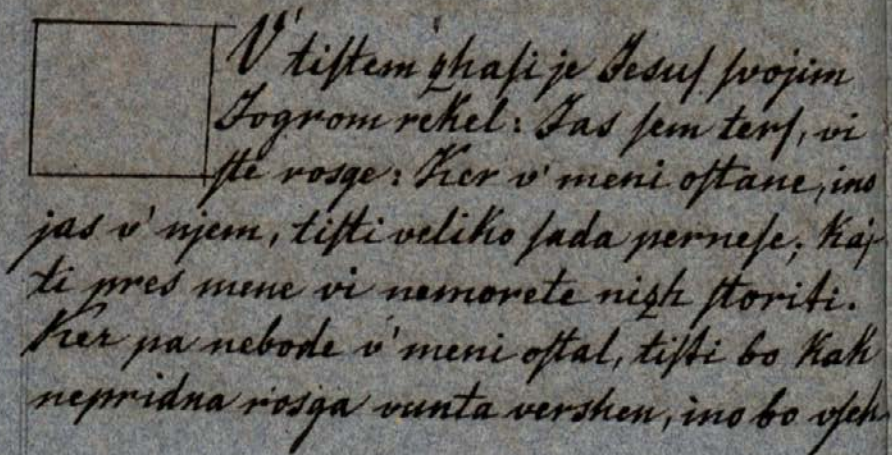 V' tiſtem zhaſi je Jesuſ ſvojim
Jogrom rekel: Jas ſem terſ, vi
ſte rosge: Ker v' meni oſtane, ino
jas v' njem, tiſti veliko ſada perneſe; Kaj
ti pres mene vi nemorete nizh ſtoriti.
Ker pa nebode v' meni oſtal, tiſti bo Kak
nepridna rosga vunta vershen, ino bo vſeh